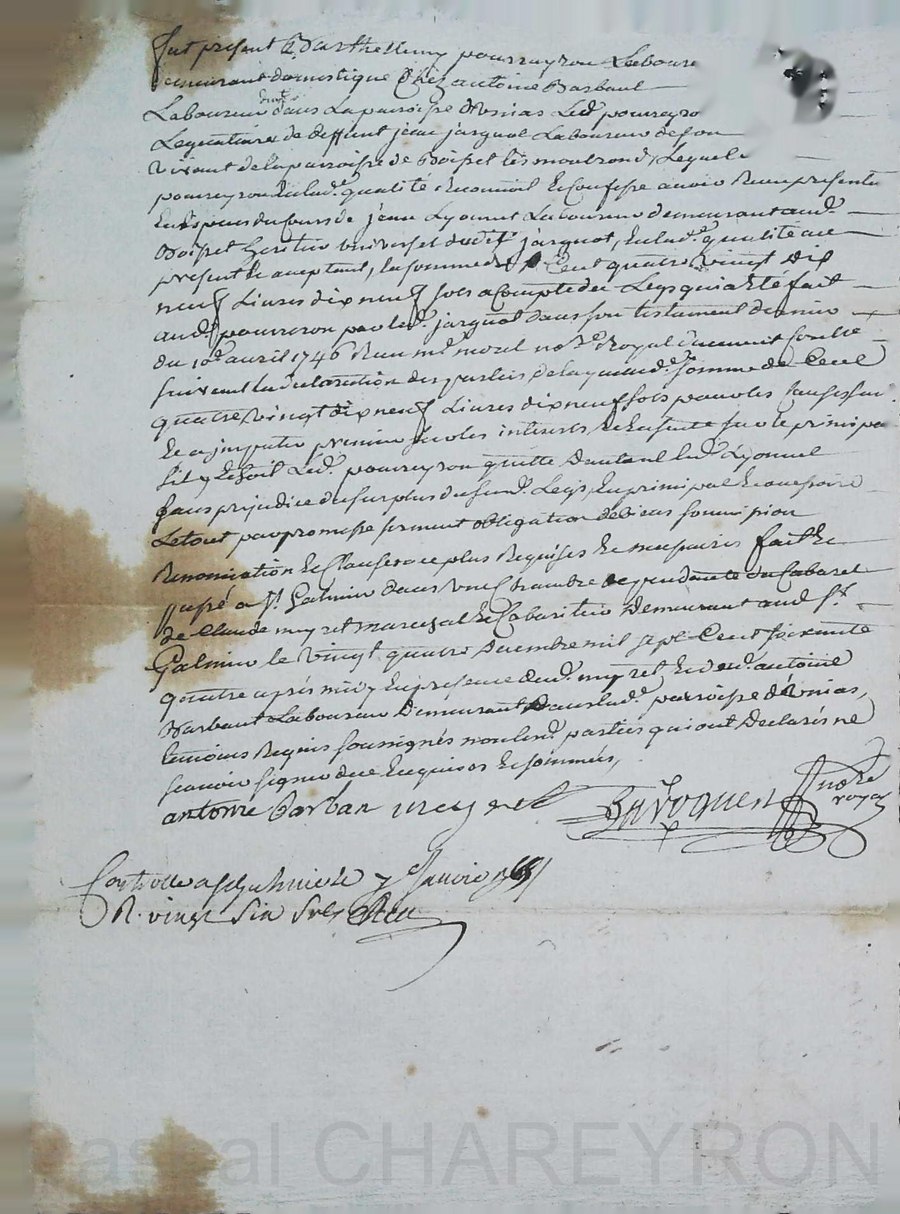 fut présent Barthellemy pourreyron Laboure
demeurant domestique Chez antoine Barbaut
Laboureur dem.t dans La paroisse d'Unias Led. pourreyro
Legataire de deffunt jean jarquot Laboureur de son
Vivant de la parroisse de Boisset les montrond, Lequel
pourreyron En lad.e qualité a Reconnü Et Confessé avoir Reçu présente
Et depuis du Cours de jean Lyonnet Laboureur demeurant aud.
Boisset heritier universel dud. jarquot, En lad.e qualité
présent Et aceptant, la somme de Cent quatre vingt dix
neuf Livres dix neuf sols a Compte du Legs qui a Eté fait
aud. pourreron par led. jarquot dans son testament dernier
du avril 1746 Reçu m.e morel no.re Royal duement Controllé
suivant la declaration des parties de laquelle d. somme de Cent
quatre vingt dix neuf Livres dix neuf sols pour les Causes sur
Et a imputer premier sur les interets Et Ensuite sur le principal
Led. pourreyron quitte d'autant led. Lyonnet
sans préjudice du surplus dususd. Legs, En principal Et accessoire
Le tout par promesse serment obligation de biens soumission
Renonciation Et Clauses a ce plus Requises Et necessaires fait Et
passé a S.t Galmier dans une Chambre dependante du Cabaret
de Claude meyret marechal Et Cabaretier Demeurant aud S.t
Galmier le Vingt quatre decembre mil sept Cent soixante
quatre après midy En presence dud. meyret Et dud. antoine
Barbaut Laboureur Demeurant dans lad. parroisse d'Unias,
temoins Requis soussignés non les d. parties qui ont Declarés ne
scavoir signer de ce Enquises Et sommées,
antoine barban meyret
no.re
royal
Controllé a St galmier le 7 Janvier 1765
R. vingt six sols
Pascal CHAREYRON